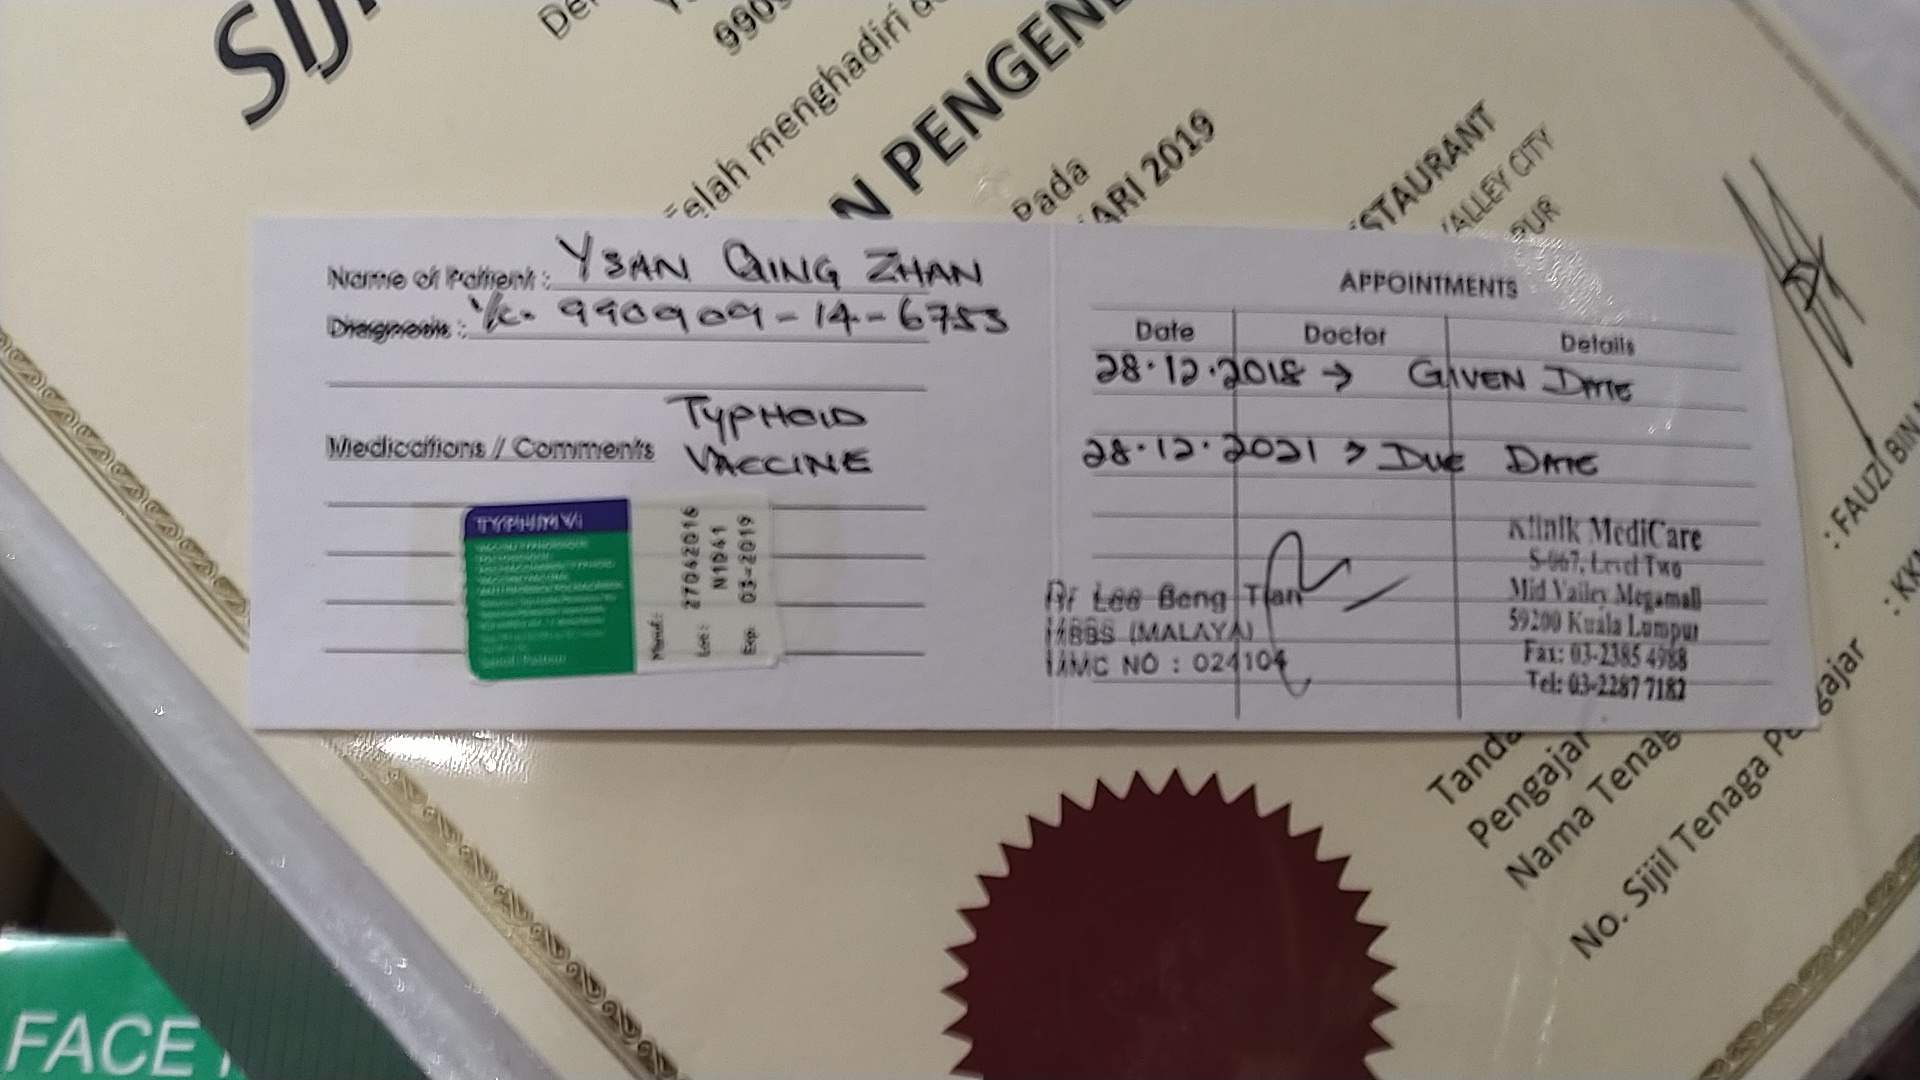 990
elah menghadiri
N PENGEN
Pada
ARI 2019
STAURANT
VALLEY CITY
PUR
Name of Patient : YSAN QING ZHAN
Diagnosis : I/c. 990909-14-6753
Medications / Comments
TYPHOID
VACCINE
TYPHIM Vi
Manuf.: 27042016
Lot: N1D41
Exp: 03-2019
APPOINTMENTS
Date Doctor Details
28.12.2018 → GIVEN DATE
28.12.2021 → DUE DATE
Dr Lee Beng Tian
MBBS (MALAYA)
MMC NO : 024104
Klinik MediCare
S-067, Level Two
Mid Valley Megamall
59200 Kuala Lumpur
Fax: 03-2385 4988
Tel: 03-2287 7182
: FAUZI BIN
: KK
Tanda
Pengajar
Nama Tenag
No. Sijil Tenaga Pengajar
FACE